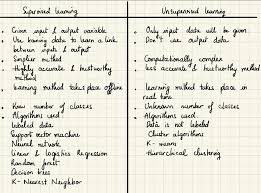 Supervised learning
Given input & output variable
Use training data to learn a link
between inputs & output
Simpler method
Highly accurate & trustworthy
method
Learning method takes place offline
Know number of classes
Algorithms used
Labeled data
Support vector machine
Neural network
Linear & Logistics Regression
Random forest
Decision trees
K-Nearest Neighbor
Unsupervised learning
Only input data will be given
Don't use output data
Computationally complex
Less accurate & trustworthy method
Learning method takes place in
real time
Unknown number of classes
Algorithms used
Data is not labeled
Cluster algorithms
K-means
Hierarchical clustering